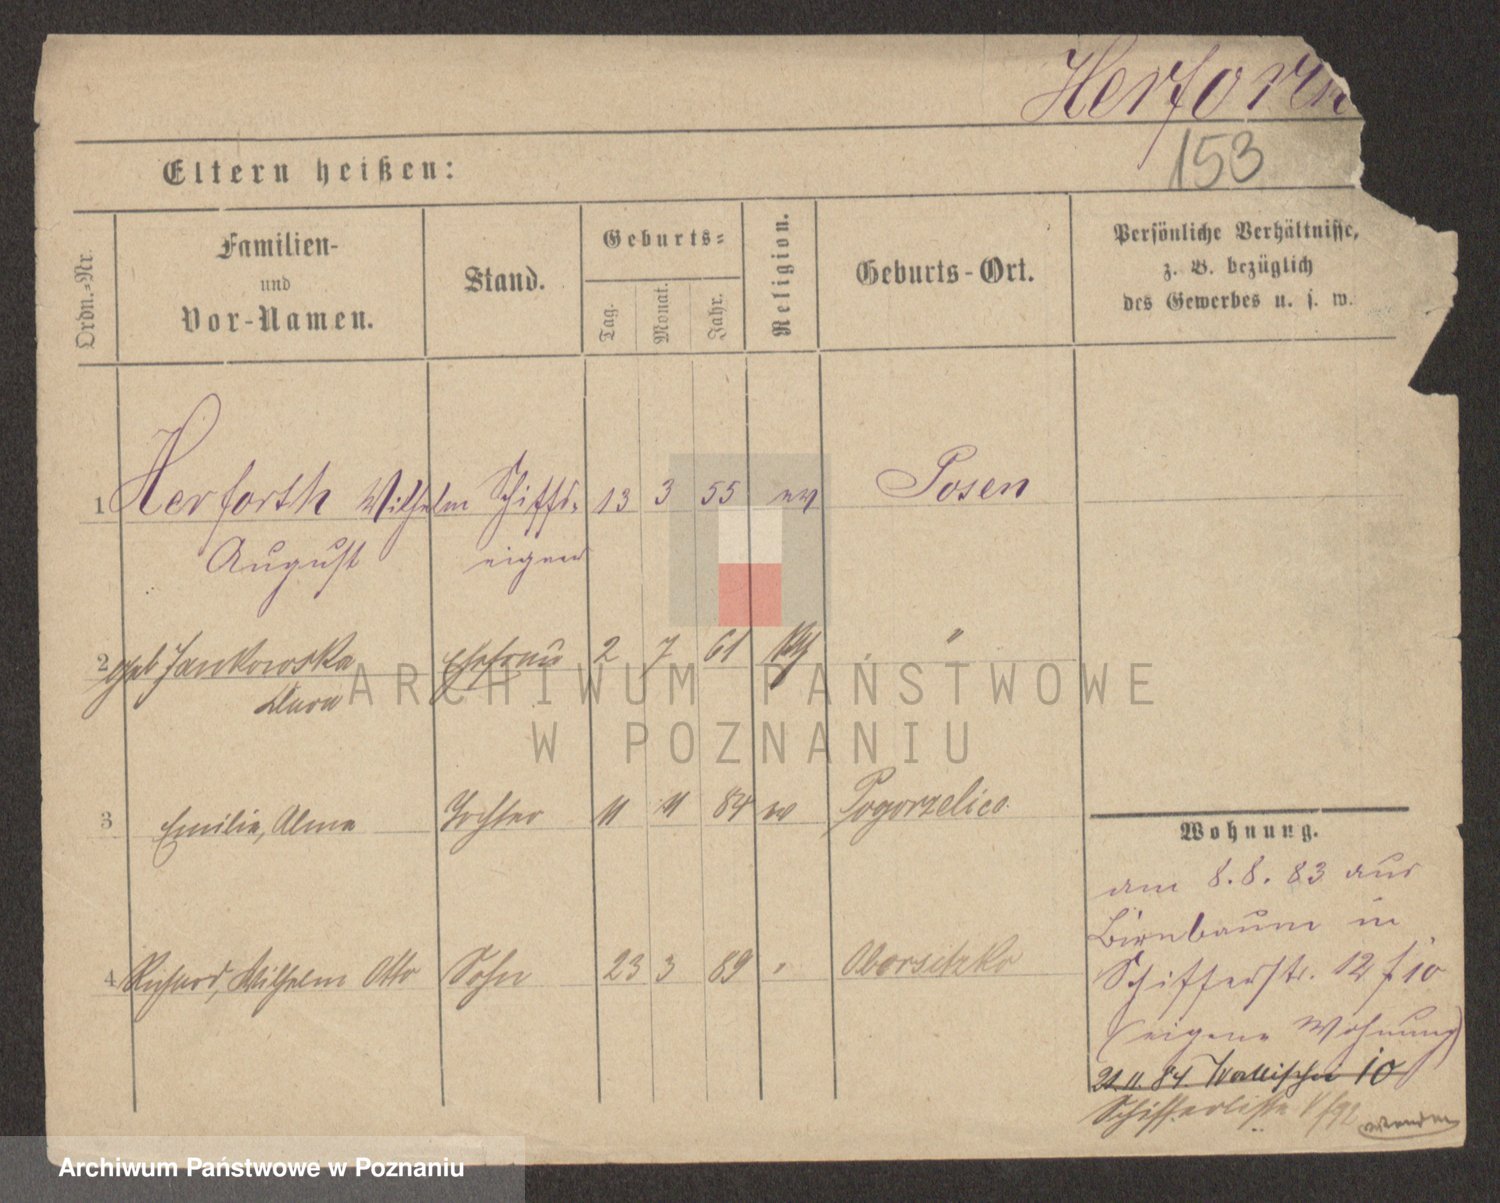 Herforth
153
Eltern heißen:
Ordn.-Nr.
Familien-
und
Vor-Namen.
Stand.
Geburts-
Tag.
Monat.
Jahr.
Religion.
Geburts-Ort.
Persönliche Verhältnisse,
z. B. bezüglich
des Gewerbes u. s. w.
1 Herforth Wilhelm Schiffs- 13 3 55 ev Posen
August eigner
2 geb Jankowska Ehefrau 2 7 61 "
3 Emilie, Alma Tochter 11 11 84 ev Pogorzelice
4 Richard, Wilhelm Otto Sohn 23 3 89 " Obersitzko
Wohnung.
am 8.8.83 aus
Birnbaum in
Schifferstr. 12 f 10
(eigene Wohnung)
21.11.84. Wallischei 10
Schifferliste
wenden
ARCHIWUM PAŃSTWOWE
W POZNANIU
Archiwum Państwowe w Poznaniu